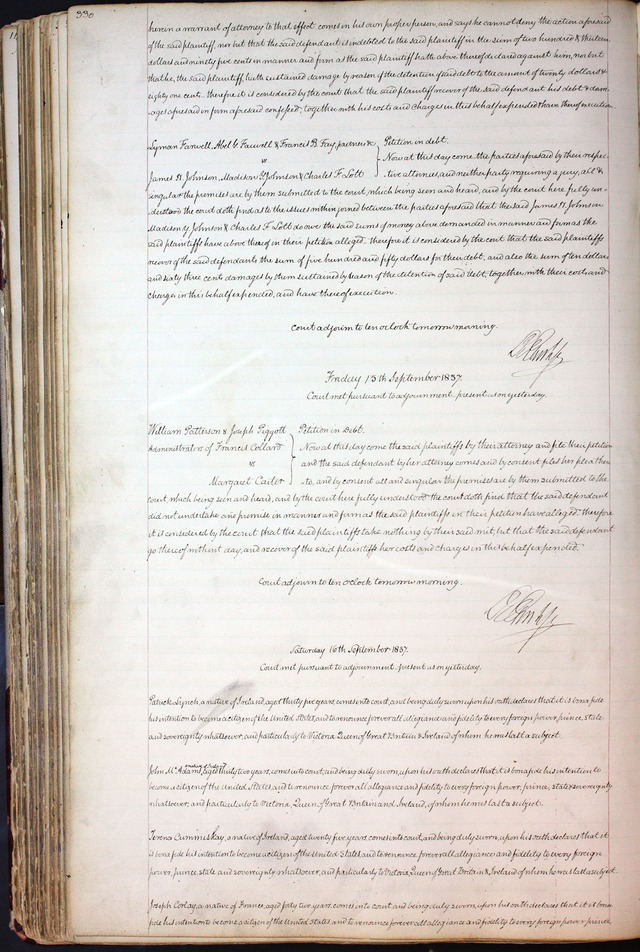 330
herein a warrant of attorney to that effect comes in his own proper person, and says he cannot deny the action aforesaid
of the said plaintiff, nor but that the said defendant is indebted to the said plaintiff in the sum of two hundred & thirteen
dollars and ninety five cents in manner and form as the said plaintiff hath above thereof declared against him, nor but
that he, the said plaintiff hath sustained damage by reason of the detention of said debt to the amount of twenty dollars &
eighty one cents. therefore it is considered by the court that the said plaintiff recover of the said defendant his debt & dam-
ages aforesaid in form aforesaid confessed, together with his costs and charges in this behalf expended & have thereof execution
Lyman Farwell, Abel G Farwell & Francis B Fay, partners &c
vs
James H Johnson, Madison Y Johnson & Charles F Lott
Petition in debt.
Now at this day come the parties aforesaid by their respec-
tive attornies, and neither party requiring a jury, all &
singular the premises are by them submitted to the court, which being seen and heard, and by the court here fully un-
derstood the court doth find as to the issues within joined between the parties aforesaid that the said James H. Johnson
Madison Y Johnson & Charles F Lott do owe the said sums of money above demanded in manner and form as the
said plaintiffs have above thereof in their petition alleged. therefore it is considered by the court that the said plaintiffs
recover of the said defendants the sum of five hundred and fifty dollars for their debt, and also the sum of ten dollars
and sixty three cents damages by them sustained by reason of the detention of said debt, together with their costs and
charges in this behalf expended, and have thereof execution.
Court adjourn to ten oclock tomorrow morning.
Friday 15th September 1837.
Court met pursuant to adjournment. present as on yesterday.
William Patterson & Joseph Piggott
Administrators of Francis Collard
vs
Margaret Carter
Petition in Debt.
Now at this day come the said plaintiffs by their attorney and file their petition
and the said defendant by her attorney comes and by consent files her plea there-
-to, and by consent all and singular the premises are by them submitted to the
court which being seen and heard, and by the court here fully understood the court doth find that the said defendant
did not undertake and promise in manner and form as the said plaintiffs in their petition have alleged. therefore
it is considered by the court that the said plaintiffs take nothing by their said writ, but that the said defendant
go thereof without day, and recover of the said plaintiffs her costs and charges in this behalf expended.
Court adjourn to ten oclock tomorrow morning.
Saturday 16th September 1837.
Court met pursuant to adjournment. present as on yesterday.
Patrick Lynch, a native of Ireland, aged thirty five years, comes into court, and being duly sworn upon his oath declares that it is bona fide
his intention to become a citizen of the United States, and to renounce forever all allegiance and fidelity to every foreign power, prince, state
and sovereignty whatsoever, and particularly to Victoria Queen of Great Britain & Ireland of whom he was last a subject.
John McAdams, a native of Ireland, aged thirty two years, comes into court, and being duly sworn, upon his oath declares that it is bona fide his intention to
become a citizen of the United States, and to renounce forever all allegiance and fidelity to every foreign power, prince, state & sovereignty
whatsoever, and particularly to Victoria, Queen of Great Britain and Ireland, of whom he was last a subject.
Terence Cummiskay, a native of Ireland, aged twenty five years, comes into court, and being duly sworn, upon his oath declares that it
is bona fide his intention to become a citizen of the United States, and to renounce forever all allegiance and fidelity to every foreign
power, prince, state and sovereignty whatsoever, and particularly to Victoria, Queen of Great Britain & Ireland of whom he was last a subject.
Joseph Corlay, a native of France, aged forty two years, comes into court and being duly sworn, upon his oath declares that it is bona
fide his intention to become a citizen of the United States, and to renounce forever all allegiance and fidelity to every foreign power prince